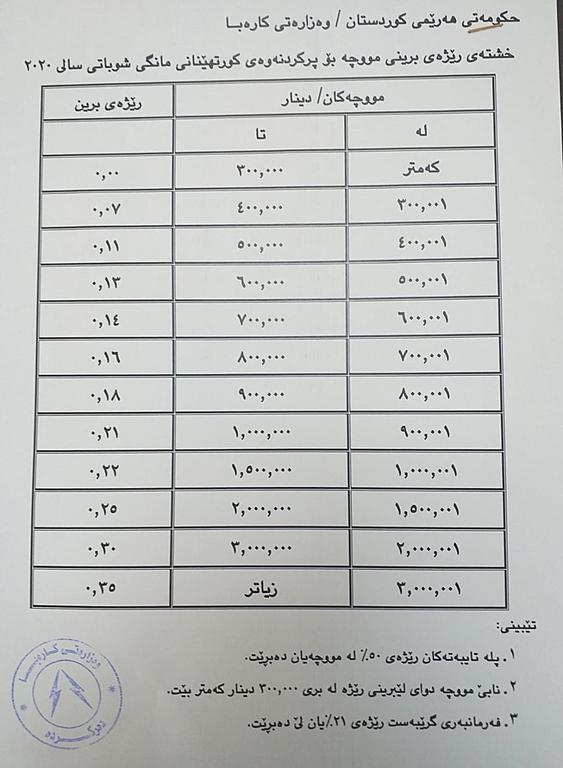 حکومەتی هەرێمی کوردستان / وەزارەتی کارەبا
خشتەی رێژەی برینی مووچە بۆ پرکردنەوەی کورتهێنانی مانگی شوباتی سالی ٢٠٢٠
مووچەکان/ دینار رێژەی برین
لە تا
کەمتر ٣٠٠,٠٠٠ ٠,٠٠
٣٠٠,٠٠١ ٤٠٠,٠٠٠ ٠,٠٧
٤٠٠,٠٠١ ٥٠٠,٠٠٠ ٠,١١
٥٠٠,٠٠١ ٦٠٠,٠٠٠ ٠,١٣
٦٠٠,٠٠١ ٧٠٠,٠٠٠ ٠,١٤
٧٠٠,٠٠١ ٨٠٠,٠٠٠ ٠,١٦
٨٠٠,٠٠١ ٩٠٠,٠٠٠ ٠,١٨
٩٠٠,٠٠١ ١,٠٠٠,٠٠٠ ٠,٢١
١,٠٠٠,٠٠١ ١,٥٠٠,٠٠٠ ٠,٢٢
١,٥٠٠,٠٠١ ٢,٠٠٠,٠٠٠ ٠,٢٥
٢,٠٠٠,٠٠١ ٣,٠٠٠,٠٠٠ ٠,٣٠
٣,٠٠٠,٠٠١ زیاتر ٠,٣٥
تێبینی:
١. پلە تایبەتەکان رێژەی ٥٠٪ لە مووچەیان دەبرێت.
٢. نابێ مووچە دوای لێبرینی رێژە لە بری ٣٠٠,٠٠٠ دینار کەمتر بێت.
٣. فەرمانبەری گرێبەست رێژەی ٢١٪یان لێ دەبرێت.
وەزارەتی کارەبا
دەرکردە